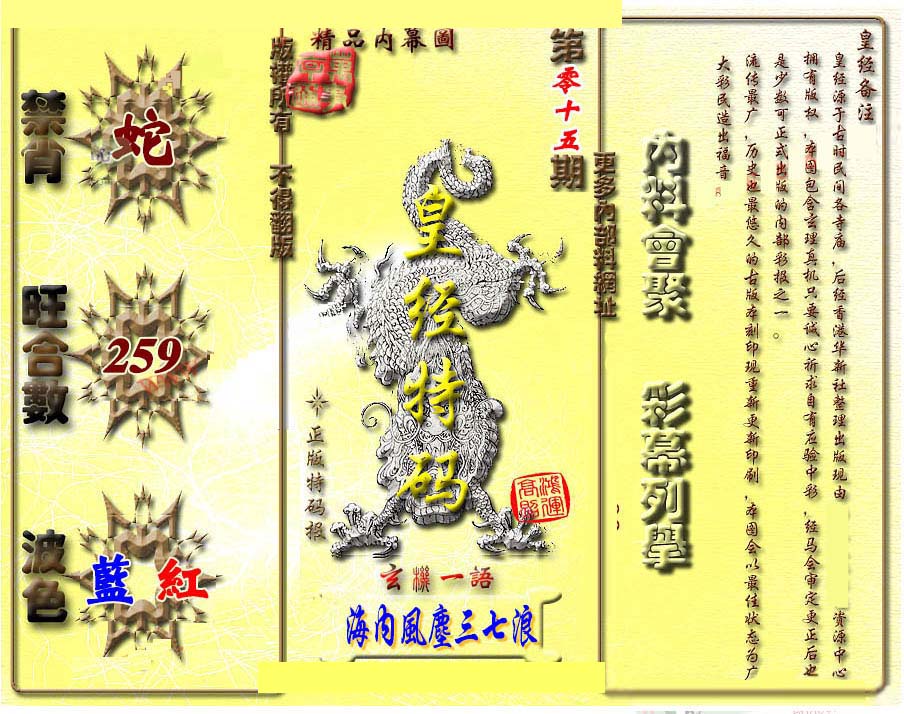 皇经备注
皇经源于古时民间各寺庙，后经香港华新社整理出版现由　　资源中心
拥有版权，本图包含玄理真机只要诚心祈求自有应验中彩，经马会审定更正后也
是少数可正式出版的内部彩报之一。
流传最广，历史也最悠久的古版本刻印现重新更新印刷，本图会以最佳状态为广
大彩民造出福音
內料會聚　彩幕列舉
更多內部料網址
第零十五期
精品内幕圖
皇经特码
鴻運高照
正版特码报
玄機一語
海内風塵三七浪
版權所有　不得翻版
禁肖
蛇
旺合數
259
波色
藍　紅